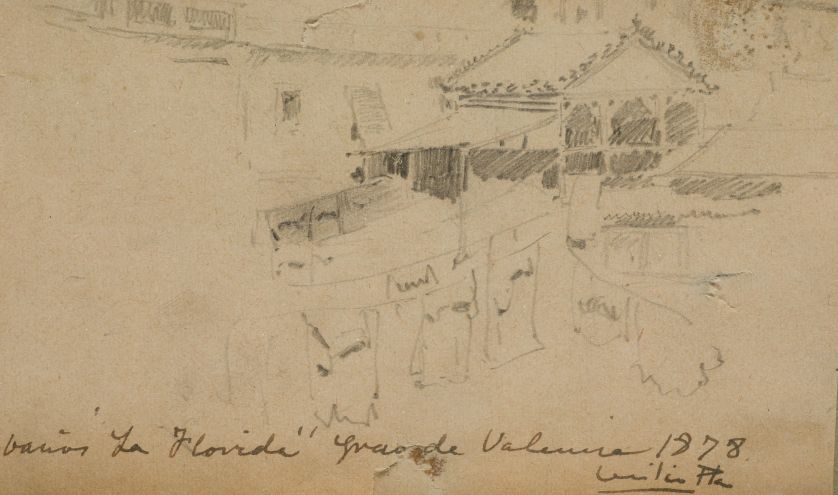 baños "La Florida" Grao de Valencia 1878.